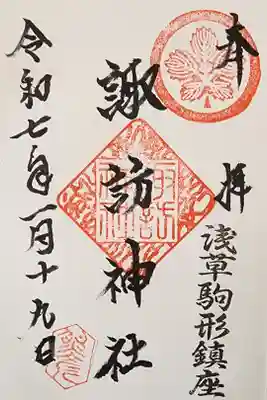 奉拝
浅草駒形鎮座
諏訪神社
令和七年一月十九日